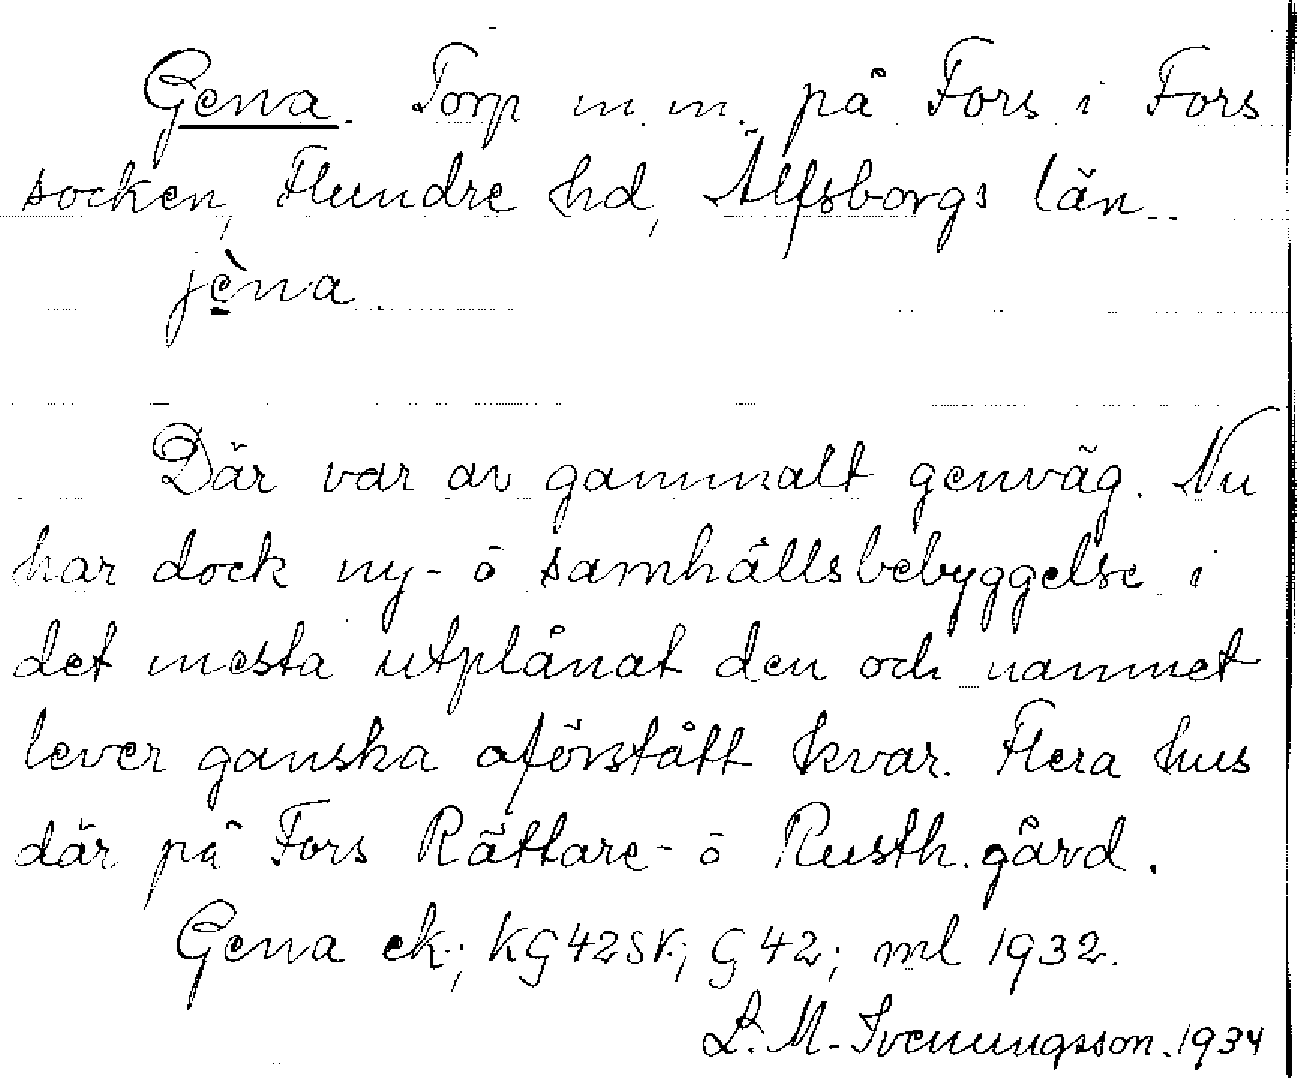 Gena. Torp m.m. på Fors i Fors
socken, Flundre hd, Älfsborgs län.
jèna.
Där var av gammalt genväg. Nu
har dock ny- o samhällsbebyggelse i
det mesta utplånat den och namnet
lever ganska oförstått kvar. Flera hus
där på Fors Rättare- o Rusth.gård.
Gena ek; KG42SV; G42; ml 1932.
L. M. Svenungsson. 1934